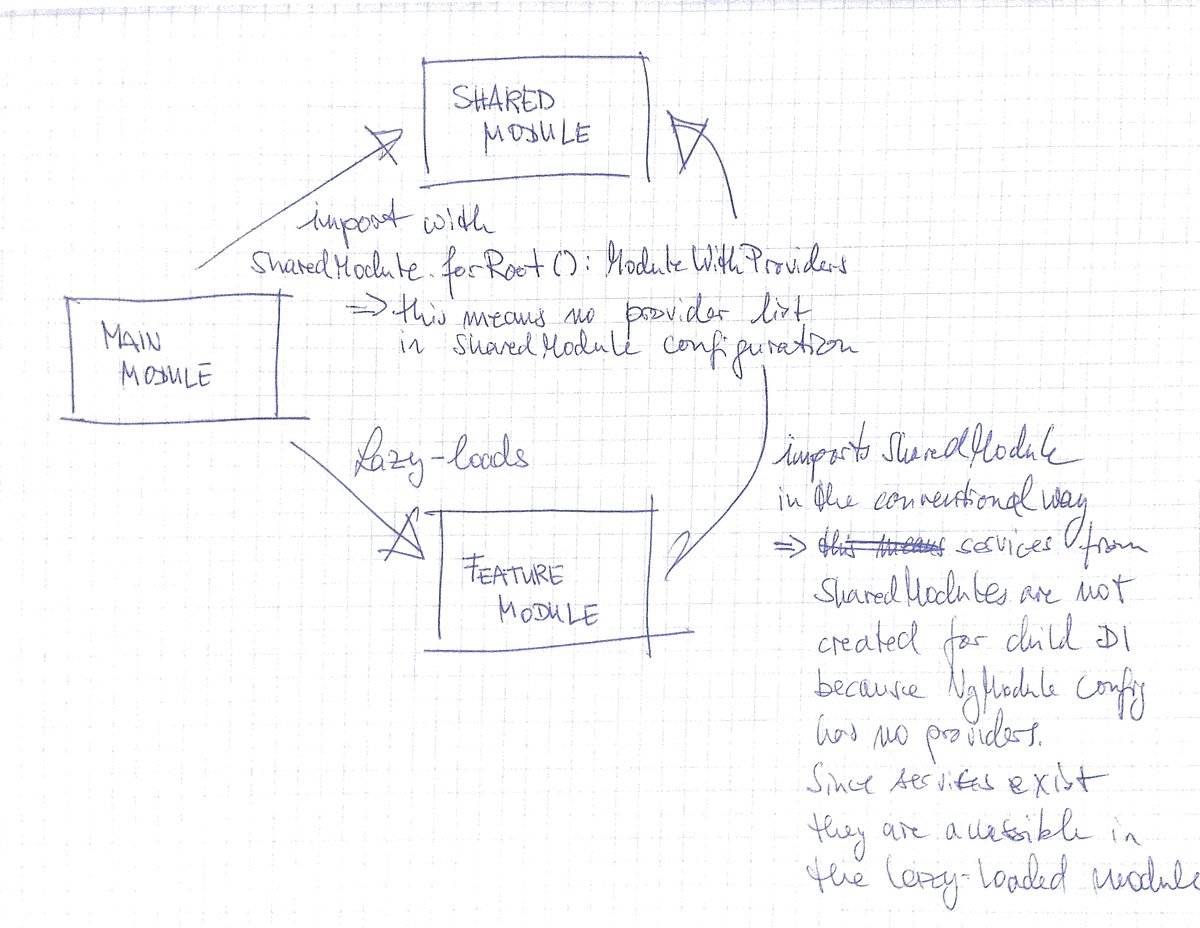 SHARED
MODULE
import with
SharedModule.forRoot(): ModuleWithProviders
=> this means no provider list
in SharedModule configuration
MAIN
MODULE
Lazy-loads
FEATURE
MODULE
imports SharedModule
in the conventional way
=> this means services from
SharedModules are not
created for child DI
because NgModule config
has no providers.
Since services exist
they are accessible in
the lazy-loaded module